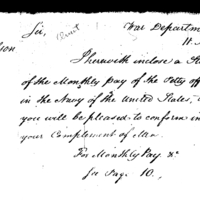 Sir,
War Departm
son
I herewith inclose a
of the Monthly Pay of the Petty off
in the Navy of the United States,
you will be pleased to conform in
your Complement of Men.
For Monthly Pay &c
See Page 10.